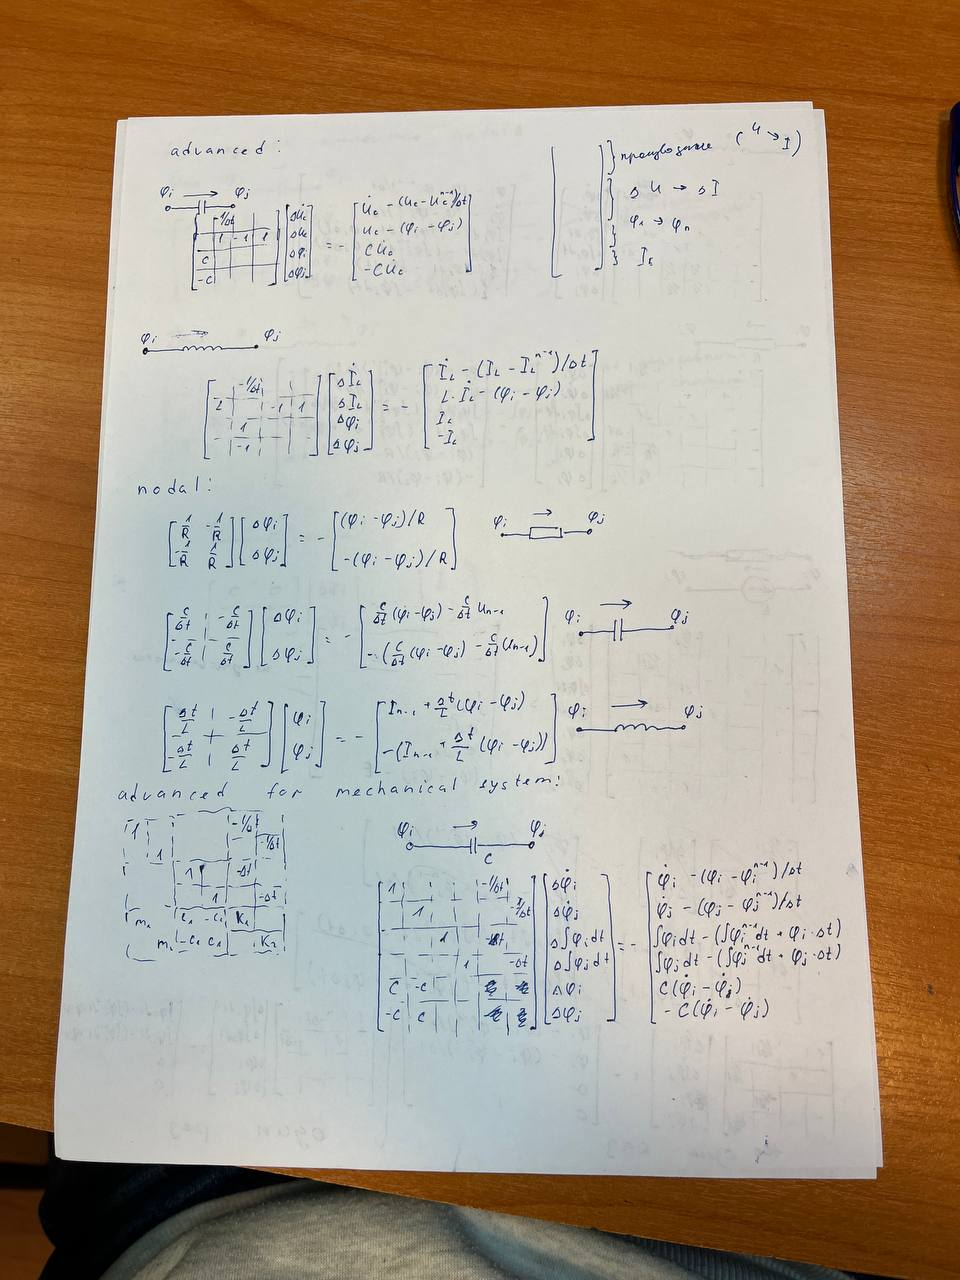 advanced:
производные ( u → I )
Δu → ΔI
φ₁ → φₙ
I_E
φi → φj
[ 1/Δt ; 1 -1 1 ; C ; -C ] [ Δu̇c ; Δuc ; Δφi ; Δφj ] = - [ u̇c - (uc - uc^{n-1})/Δt ; uc - (φi - φj) ; Cu̇c ; -Cu̇c ]
φi → φj
[ -1/Δt ; L -1 1 ; 1 ; -1 ] [ Δİ_L ; ΔI_L ; Δφi ; Δφj ] = - [ İ_L - (I_L - I_L^{n-1})/Δt ; L·İ_L - (φi - φj) ; I_L ; -I_L ]
nodal:
[ 1/R -1/R ; -1/R 1/R ] [ Δφi ; Δφj ] = - [ (φi - φj)/R ; -(φi - φj)/R ]
φi → φj
[ C/Δt -C/Δt ; -C/Δt C/Δt ] [ Δφi ; Δφj ] = - [ C/Δt (φi - φj) - C/Δt u_{n-1} ; -(C/Δt (φi - φj) - C/Δt u_{n-1}) ]
φi → φj
[ Δt/L -Δt/L ; -Δt/L Δt/L ] [ φi ; φj ] = - [ I_{n-1} + Δt/L (φi - φj) ; -(I_{n-1} + Δt/L (φi - φj)) ]
φi → φj
advanced for mechanical system:
1 -1/Δt
1 -1/Δt
1 -Δt
1 -Δt
m₁ c₁ -c₁ K₁
m₂ -c₁ c₁ K₂
φi → φj
C
[ 1 -1/Δt ; 1 -1/Δt ; 1 -Δt ; 1 -Δt ; C -C ; -C C ] [ Δφ̇i ; Δφ̇j ; Δ∫φi dt ; Δ∫φj dt ; Δφi ; Δφj ] = - [ φ̇i - (φi - φi^{n-1})/Δt ; φ̇j - (φj - φj^{n-1})/Δt ; ∫φi dt - (∫φi^{n-1} dt + φi·Δt) ; ∫φj dt - (∫φj^{n-1} dt + φj·Δt) ; C(φ̇i - φ̇j) ; -C(φ̇i - φ̇j) ]